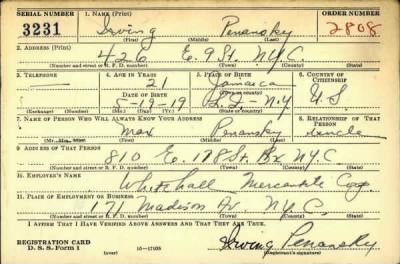 SERIAL NUMBER 1. NAME (Print) ORDER NUMBER
3231 Irving Penansky 2808
(First) (Middle) (Last)
2. ADDRESS (Print)
426 E. 9 St. N.Y.C.
(Number and street or R. F. D. number) (Town) (County) (State)
3. TELEPHONE 4. AGE IN YEARS 5. PLACE OF BIRTH 6. COUNTRY OF CITIZENSHIP
— 21 Jamaica
DATE OF BIRTH
5-19-19 N.Y. U.S.
(Exchange) (Number) (Mo.) (Day) (Yr.) (State or country)
7. NAME OF PERSON WHO WILL ALWAYS KNOW YOUR ADDRESS 8. RELATIONSHIP OF THAT PERSON
Max Penansky Uncle
(Mr., Mrs., Miss) (First) (Middle) (Last)
9. ADDRESS OF THAT PERSON
810 E. 178 St. Bx. N.Y.C
(Number and street or R. F. D. number) (Town) (County) (State)
10. EMPLOYER'S NAME
Whitehall Mercantile Corp.
11. PLACE OF EMPLOYMENT OR BUSINESS
171 Madison Av. N.Y.C.
(Number and street or R. F. D. number) (Town) (County) (State)
I AFFIRM THAT I HAVE VERIFIED ABOVE ANSWERS AND THAT THEY ARE TRUE.
REGISTRATION CARD
D. S. S. Form 1 (over) 16—17105 Irving Penansky